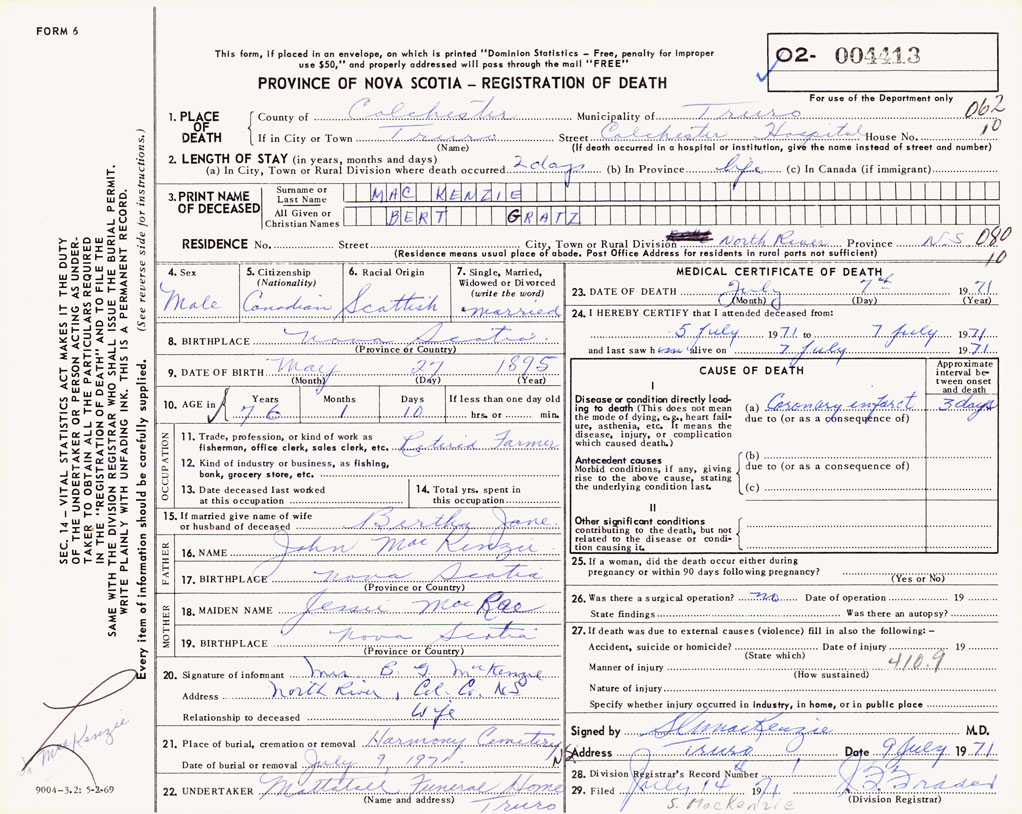 FORM 6
This form, if placed in an envelope, on which is printed "Dominion Statistics – Free, penalty for improper
use $50," and properly addressed will pass through the mail "FREE"
02- 004413
PROVINCE OF NOVA SCOTIA – REGISTRATION OF DEATH
For use of the Department only
1. PLACE OF DEATH
County of Colchester Municipality of Truro 062
If in City or Town Truro Street Colchester Hospital House No. 10
(Name) (If death occurred in a hospital or institution, give the name instead of street and number)
2. LENGTH OF STAY (in years, months and days)
(a) In City, Town or Rural Division where death occurred 2 days (b) In Province life (c) In Canada (if immigrant)
3. PRINT NAME OF DECEASED
Surname or Last Name MAC KENZIE
All Given or Christian Names BERT GRATZ
RESIDENCE No. Street City, Town or Rural Division North River Province N.S. 080
10
(Residence means usual place of abode. Post Office Address for residents in rural parts not sufficient)
4. Sex
Male
5. Citizenship
(Nationality)
Canadian
6. Racial Origin
Scottish
7. Single, Married,
Widowed or Divorced
(write the word)
married
8. BIRTHPLACE Nova Scotia
(Province or Country)
9. DATE OF BIRTH May 27 1895
(Month) (Day) (Year)
10. AGE in Years Months Days If less than one day old
76 1 10 hrs. or min.
OCCUPATION
11. Trade, profession, or kind of work as
fisherman, office clerk, sales clerk, etc. Retired Farmer
12. Kind of industry or business, as fishing,
bank, grocery store, etc.
13. Date deceased last worked
at this occupation
14. Total yrs. spent in
this occupation
15. If married give name of wife
or husband of deceased Bertha Jane
FATHER
16. NAME John MacKenzie
17. BIRTHPLACE Nova Scotia
(Province or Country)
MOTHER
18. MAIDEN NAME Jessie MacRae
19. BIRTHPLACE Nova Scotia
(Province or Country)
20. Signature of informant Mrs B. G. McKenzie
Address North River, Col. Co. N.S
Relationship to deceased Wife
21. Place of burial, cremation or removal Harmony Cemetery N.S
Date of burial or removal July 9 1971
22. UNDERTAKER Mattatall Funeral Home
(Name and address) Truro
MEDICAL CERTIFICATE OF DEATH
23. DATE OF DEATH July 7th 1971
(Month) (Day) (Year)
24. I HEREBY CERTIFY that I attended deceased from:
5 July 1971 to 7 July 1971
and last saw him alive on 7 July 1971
CAUSE OF DEATH
Approximate
interval be-
tween onset
and death
I
Disease or condition directly lead-
ing to death (This does not mean
the mode of dying, e.g., heart fail-
ure, asthenia, etc. It means the
disease, injury, or complication
which caused death.)
(a) Coronary infarct 3 days
due to (or as a consequence of)
Antecedent causes
Morbid conditions, if any, giving
rise to the above cause, stating
the underlying condition last.
(b)
due to (or as a consequence of)
(c)
II
Other significant conditions
contributing to the death, but not
related to the disease or condi-
tion causing it.
25. If a woman, did the death occur either during
pregnancy or within 90 days following pregnancy?
(Yes or No)
26. Was there a surgical operation? no Date of operation 19
State findings Was there an autopsy?
27. If death was due to external causes (violence) fill in also the following: –
Accident, suicide or homicide? Date of injury 19
(State which) 410.9
Manner of injury
(How sustained)
Nature of injury
Specify whether injury occurred in industry, in home, or in public place
Signed by MacKenzie M.D.
Address Truro Date 9 July 1971
28. Division Registrar's Record Number
29. Filed July 14 1971
(Division Registrar)
S. MacKenzie
SEC. 14 – VITAL STATISTICS ACT MAKES IT THE DUTY
OF THE UNDERTAKER OR PERSON ACTING AS UNDER-
TAKER TO OBTAIN ALL THE PARTICULARS REQUIRED
IN THE "REGISTRATION OF DEATH" AND TO FILE THE
SAME WITH THE DIVISION REGISTRAR WHO SHALL ISSUE THE BURIAL PERMIT.
WRITE PLAINLY WITH UNFADING INK. THIS IS A PERMANENT RECORD.
Every item of information should be carefully supplied. (See reverse side for instructions.)
MacKenzie
9004–3.2: 5-2-69